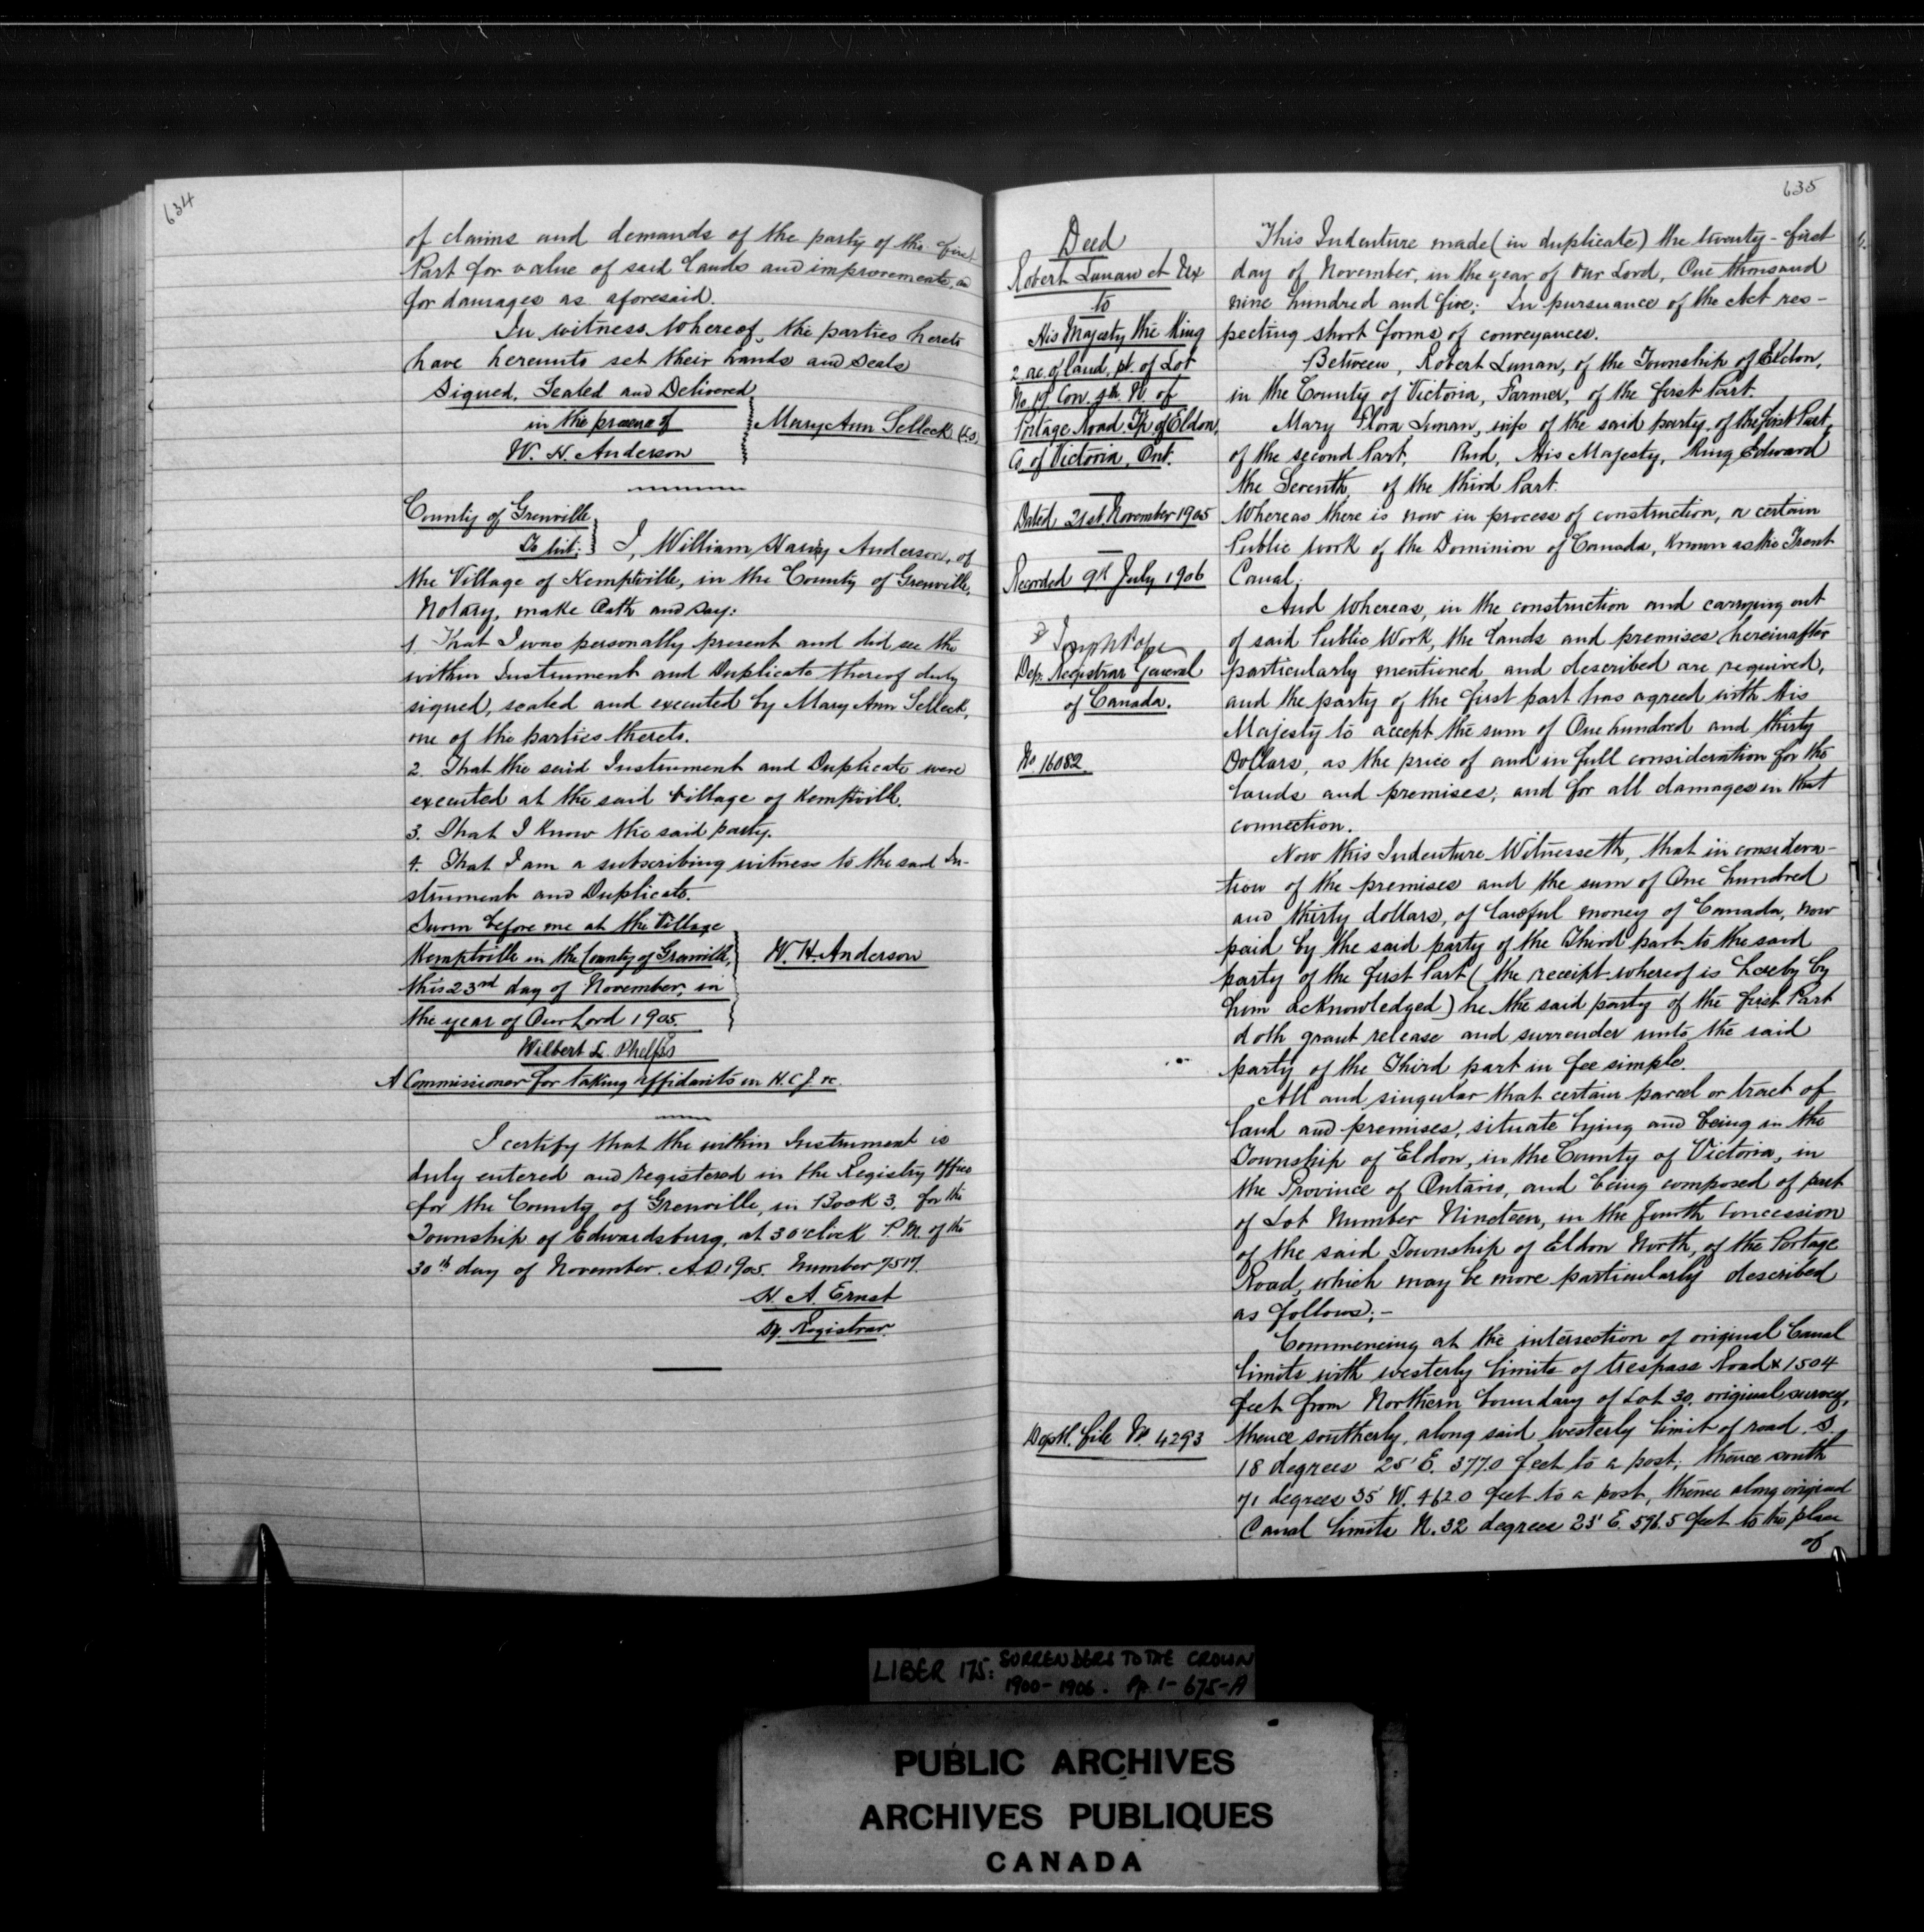 634
of claims and demands of the party of the first
Part for value of said lands and improvements, and
for damages as aforesaid.
In witness whereof, the parties hereto
have hereunto set their hands and seals
Signed, Sealed and Delivered
in the presence of
W. H. Anderson
Mary Ann Selleck (L.S.)
County of Grenville
To Wit: I, William Harvey Anderson, of
the Village of Kemptville, in the County of Grenville,
Notary, make Oath and say:
1. That I was personally present and did see the
within Instrument and Duplicate thereof duly
signed, sealed and executed by Mary Ann Selleck,
one of the parties thereto.
2. That the said Instrument and Duplicate were
executed at the said Village of Kemptville.
3. That I know the said party.
4. That I am a subscribing witness to the said In-
strument and Duplicate.
Sworn before me at the Village
Kemptville in the County of Grenville,
this 23rd day of November, in
the year of Our Lord 1905.
W. H. Anderson
Wilbert L. Phelps
A Commissioner for taking affidavits in H.C.J. &c.
I certify that the within Instrument is
duly entered and registered in the Registry Office
for the County of Grenville, in Book 3, for the
Township of Edwardsburg, at 3 o'clock P.M. of the
30th day of November. A.D. 1905. Number 7517.
H. A. Ernst
Dy. Registrar.
635
Deed
Robert Lunan et Ux
to
His Majesty the King
2 ac. of land, pt. of Lot
No 19 Con. 4th N. of
Portage Road, Tp. of Eldon,
Co. of Victoria, Ont.
Dated 21st November 1905
Recorded 9th July 1906
Joseph Pope
Dep. Registrar General
of Canada.
No 16082.
Deptl. file No. 4293
This Indenture made (in duplicate) the twenty-first
day of November, in the year of Our Lord, One thousand
nine hundred and five; In pursuance of the Act res-
pecting short forms of conveyances.
Between, Robert Lunan, of the Township of Eldon,
in the County of Victoria, Farmer, of the first Part.
Mary Flora Lunan, wife of the said party of the first Part,
of the second Part, And, His Majesty, King Edward
the Seventh, of the third Part.
Whereas there is now in process of construction, a certain
Public work of the Dominion of Canada, known as the Trent
Canal.
And Whereas, in the construction and carrying out
of said Public Work, the lands and premises hereinafter
particularly mentioned and described are required,
and the party of the first part has agreed with His
Majesty to accept the sum of One hundred and thirty
Dollars, as the price of and in full consideration for the
lands and premises, and for all damages in that
connection.
Now this Indenture Witnesseth, that in considera-
tion of the premises and the sum of One hundred
and thirty dollars, of lawful money of Canada, now
paid by the said party of the Third part to the said
party of the first Part (the receipt whereof is hereby by
him acknowledged) he the said party of the first Part
doth grant release and surrender unto the said
party of the Third part in fee simple.
All and singular that certain parcel or tract of
land and premises, situate lying and being in the
Township of Eldon, in the County of Victoria, in
the Province of Ontario, and being composed of part
of Lot Number Nineteen, in the Fourth Concession
of the said Township of Eldon North, of the Portage
Road, which may be more particularly described
as follows:-
Commencing at the intersection of original Canal
limits with westerly limits of trespass Road & 1504
feet from Northern boundary of Lot 30, original survey,
thence southerly, along said westerly limit of road. S.
18 degrees 25' E. 377.0 feet to a post; thence south
71 degrees 35' W. 462.0 feet to a post, thence along original
Canal limits N. 32 degrees 23' E. 596.5 feet to the place
of
LIBER 175: SURRENDERS TO THE CROWN
1900-1906. Pp. 1-675-A
PUBLIC ARCHIVES
ARCHIVES PUBLIQUES
CANADA